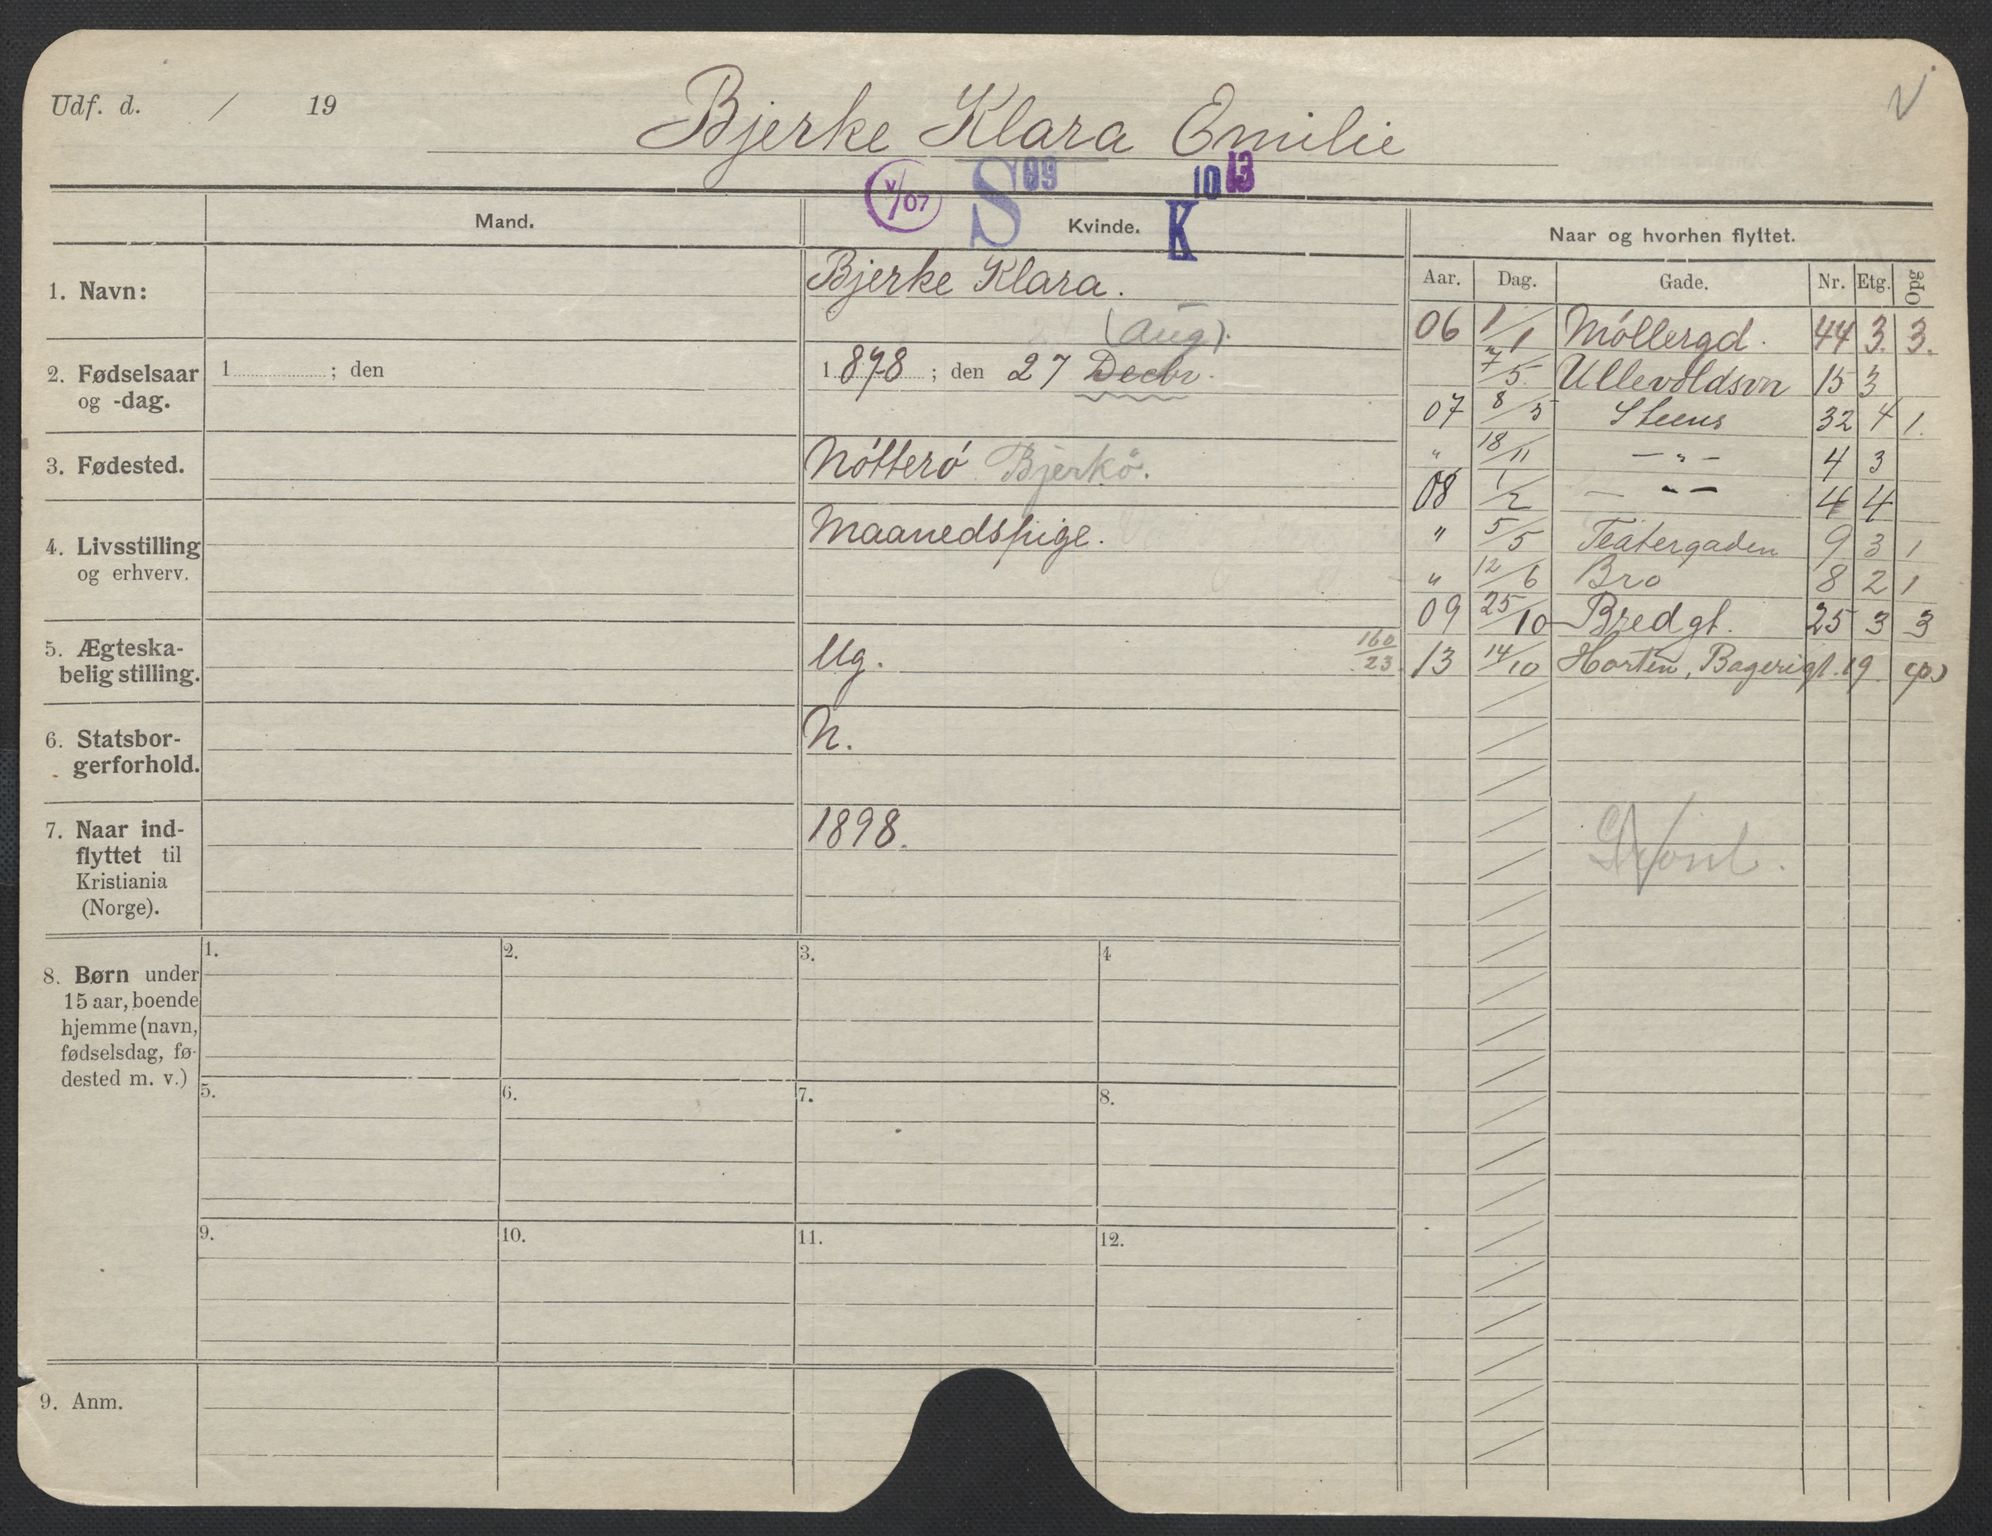 Udf. d. / 19
Bjerke Klara Emilie
V/07 S 09 K 10 13
Mand.
Kvinde.
Naar og hvorhen flyttet.
Aar. Dag. Gade. Nr. Etg. Opg
1. Navn:
Bjerke Klara.
(Aug).
2. Fødselsaar og -dag.
1 ; den
1 878 ; den 27 Decbr.
3. Fødested.
Nötterö Bjerkö.
4. Livsstilling og erhverv.
Maanedspige.
5. Ægteskabelig stilling.
Ug.
160/23.
6. Statsborgerforhold.
N.
7. Naar indflyttet til Kristiania (Norge).
1898.
06 1/1 Möllergd. 44 3. 3.
7/5 Ullevoldsvn 15 3
07 8/5 Steens 32 4 1.
" 18/11 — " — 4 3
08 1/2 — " — 4 4
" 5/5 Teatergaden 9 3 1
" 12/6 Bro 8 2 1
09 25/10 Bredgt. 25 3 3
13 14/10 Horten, Bagerigt. 19
8. Børn under
15 aar, boende
hjemme (navn,
fødselsdag, fø-
dested m. v.)
1. 2. 3. 4
5. 6. 7. 8.
9. 10. 11. 12.
9. Anm.